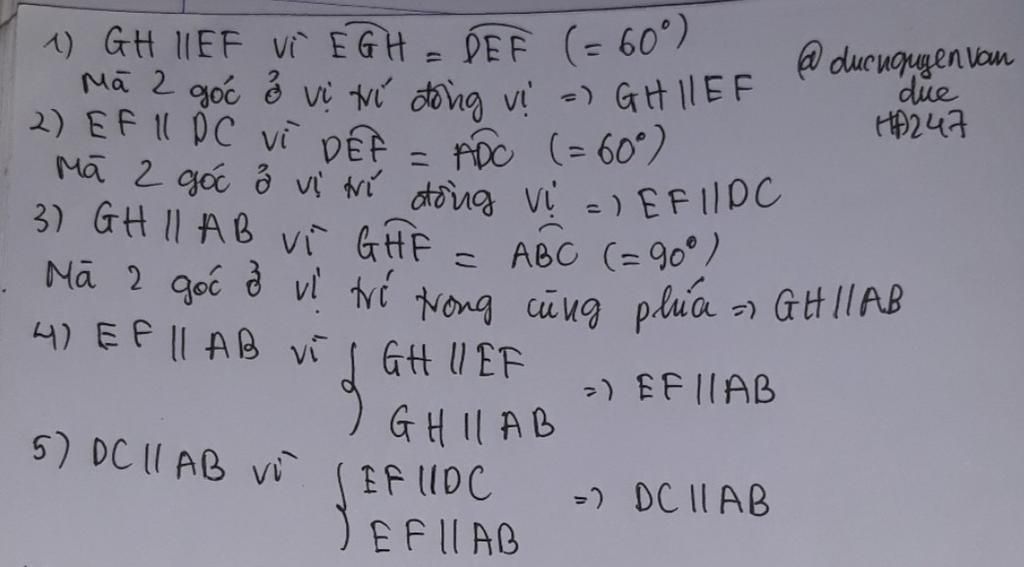 1) GH || EF vì EGH = DEF (= 60°)
Mà 2 góc ở vị trí đồng vị => GH || EF
@ducnguyenvan
duc
HĐ247
2) EF || DC vì DEF = ADC (= 60°)
Mà 2 góc ở vị trí đồng vị => EF || DC
3) GH || AB vì GHF = ABC (= 90°)
Mà 2 góc ở vị trí trong cùng phía => GH // AB
4) EF || AB vì { GH // EF
GH || AB => EF || AB
5) DC // AB vì { EF || DC
EF || AB => DC || AB